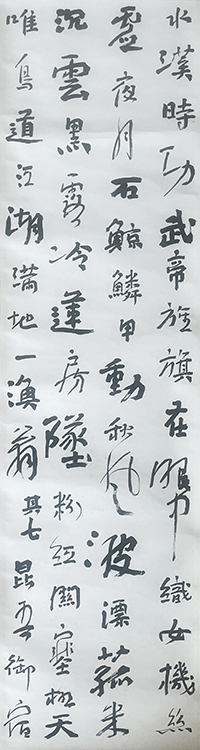 水漢時功武帝旌旗在眼中織女機絲
虛夜月石鯨鱗甲動秋風波漂菰米
沉雲黑露冷蓮房墜粉紅關塞極天
唯鳥道江湖滿地一漁翁其七昆吾御宿